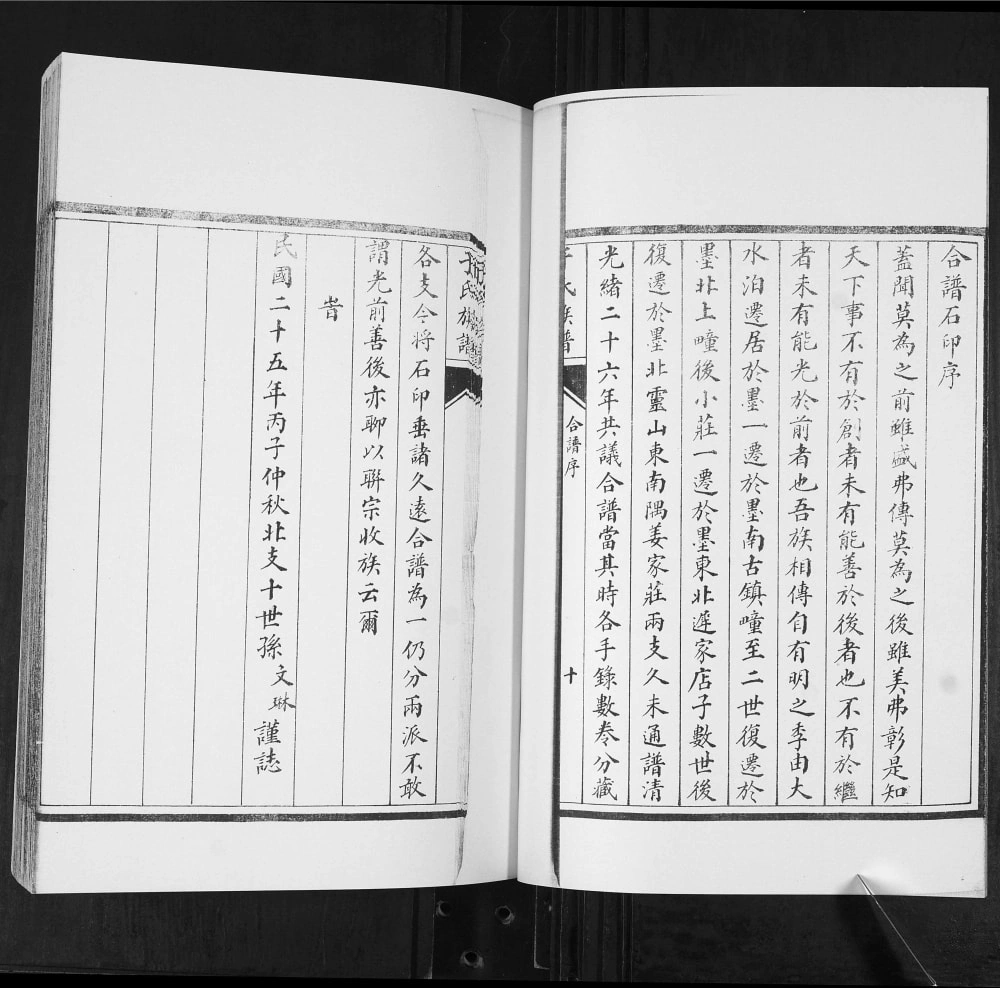 合譜石印序
蓋聞莫為之前雖盛弗傳莫為之後雖美弗彰是知
天下事不有於創者未有能善於後者也不有於繼
者未有能光於前者也吾族相傳自有明之季由大
水泊遷居於墨一遷於墨南古鎮疃至二世復遷於
墨北上疃後小莊一遷於墨東北遲家店子數世後
復遷於墨北靈山東南隅姜家莊兩支久未通譜清
光緒二十六年共議合譜當其時各手錄數卷分藏
氏族譜
合譜序
十
氏族譜
各支今將石印垂諸久遠合譜為一仍分兩派不敢
謂光前善後亦聊以聯宗收族云爾
旹
民國二十五年丙子仲秋北支十世孫文琳謹誌